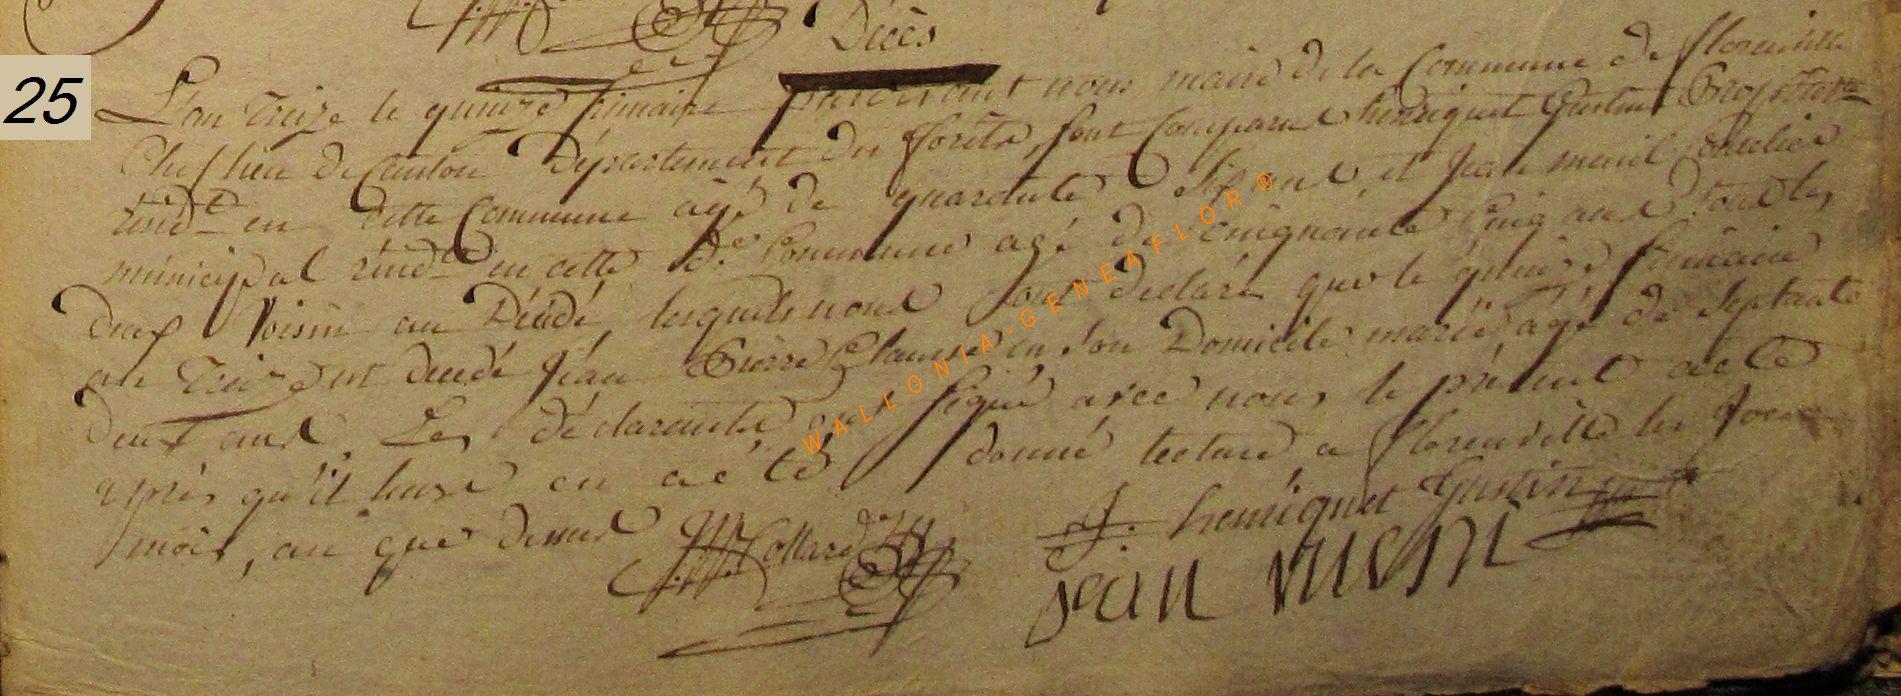 Décès
25
L'an treize le quinze frimaire pardevant nous maire de la Commune de florenville
Chef lieu de Canton Département des forêts, sont Comparus henriquet Gustin
résidt en cette Commune agé de quarante ans, et Jean
municipal résidt en cette de Commune agé de cinquante cinq ans tous les
deux Voisin au Décédé, lesquels nous ont declaré que le quinze frimaire
an Treize est decedé Jean Pierre en son Domicile marié, agé de septante
deux ans. Les déclarants ont signé avec nous le présent acte
après qu'il leur en a été donné lecture a florenville les Jour
mois, an que dessus Collard
J. henriquet Gustin
jean
WALLONIA-GENEAFLOR®